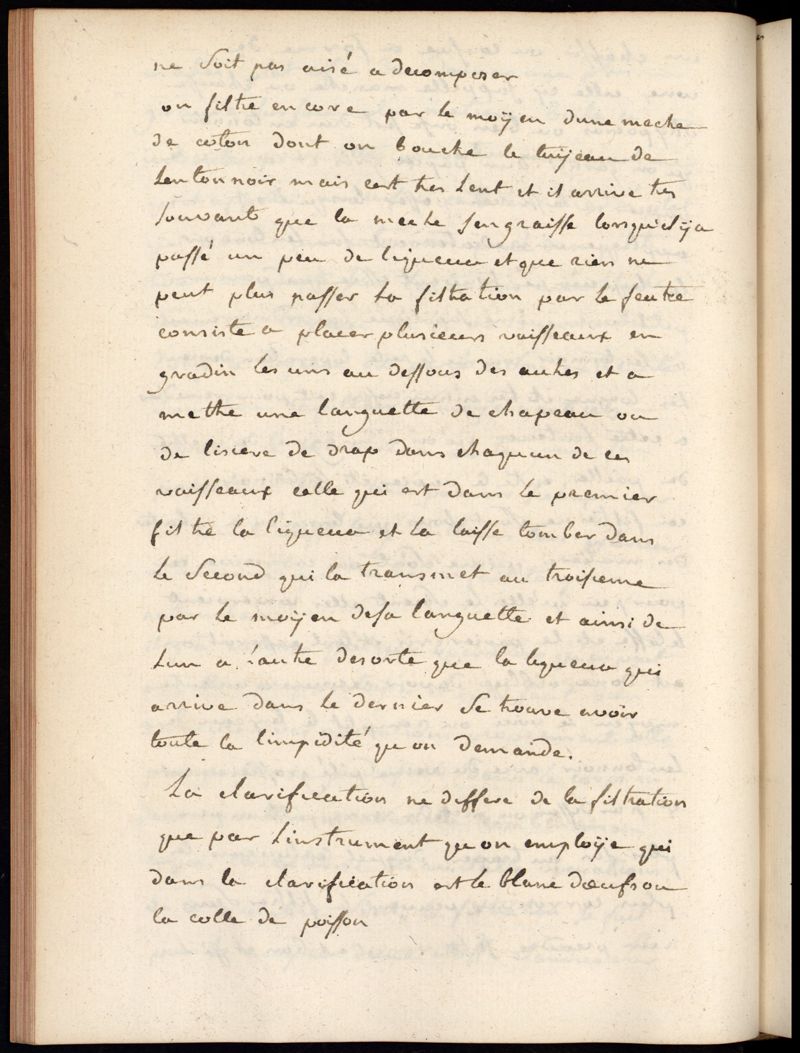 ne soit pas aisé a decomposer
on filtre encore par le moÿen dune meche
de coton dont on bouche le tuÿeau de
Lentonnoir mais cest tres Lent et il arrive tres
souvant que la meche sengraisse lorsquil ÿ a
passé un peu de liqueur et que rien ne
peut plus passer La filtration par le feutre
consiste a placer plusieurs vaisseaux en
gradin les uns au dessous des autres et a
metre une languette de chapeau ou
de lisiere de drap dans chaqun de ces
vaisseaux celle qui est dans le premier
filtre la liqueur et la laisse tomber dans
le second qui la transmet au troisieme
par le moÿen de sa languette et ainsi de
Lun a l'autre desorte que la liqueur qui
arrive dans le dernier se trouve avoir
toute la limpidité qu on demande.
La clarification ne differe de la filtration
que par Linstrument qu on emploÿe qui
dans la clarification est le blanc dœufs ou
la colle de poisson